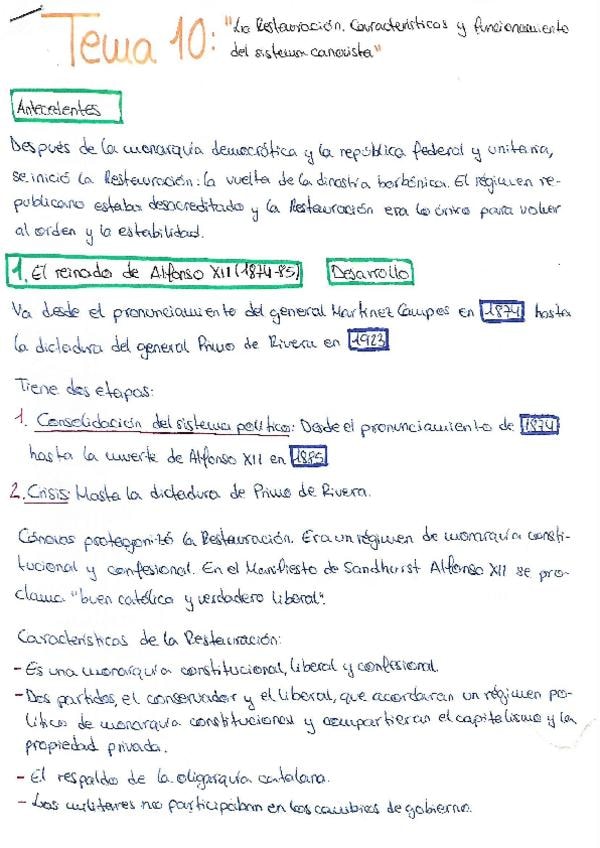 Tema 10: "La Restauración. Características y funcionamiento
del sistema canovista"
Antecedentes
Después de la monarquía democrática y la república federal y unitaria,
se inició la Restauración: la vuelta de la dinastía borbónica. El régimen re-
publicano estaba desacreditado y la Restauración era lo único para volver
al orden y la estabilidad.
1. El reinado de Alfonso XII (1874-85) Desarrollo
Va desde el pronunciamiento del general Martínez Campos en 1874 hasta
la dictadura del general Primo de Rivera en 1923
Tiene dos etapas:
1. Consolidación del sistema político: Desde el pronunciamiento de 1874
hasta la muerte de Alfonso XII en 1885
2. Crisis: Hasta la dictadura de Primo de Rivera.
Cánovas protagonizó la Restauración. Era un régimen de monarquía consti-
tucional y confesional. En el Manifiesto de Sandhurst Alfonso XII se pro-
clama "buen católico y verdadero liberal".
Características de la Restauración:
- Es una monarquía constitucional, liberal y confesional.
- Dos partidos, el conservador y el liberal, que acordaran un régimen po-
lítico de monarquía constitucional y compartieran el capitalismo y la
propiedad privada.
- El respaldo de la oligarquía catalana.
- Los militares no participaban en los cambios de gobierno.